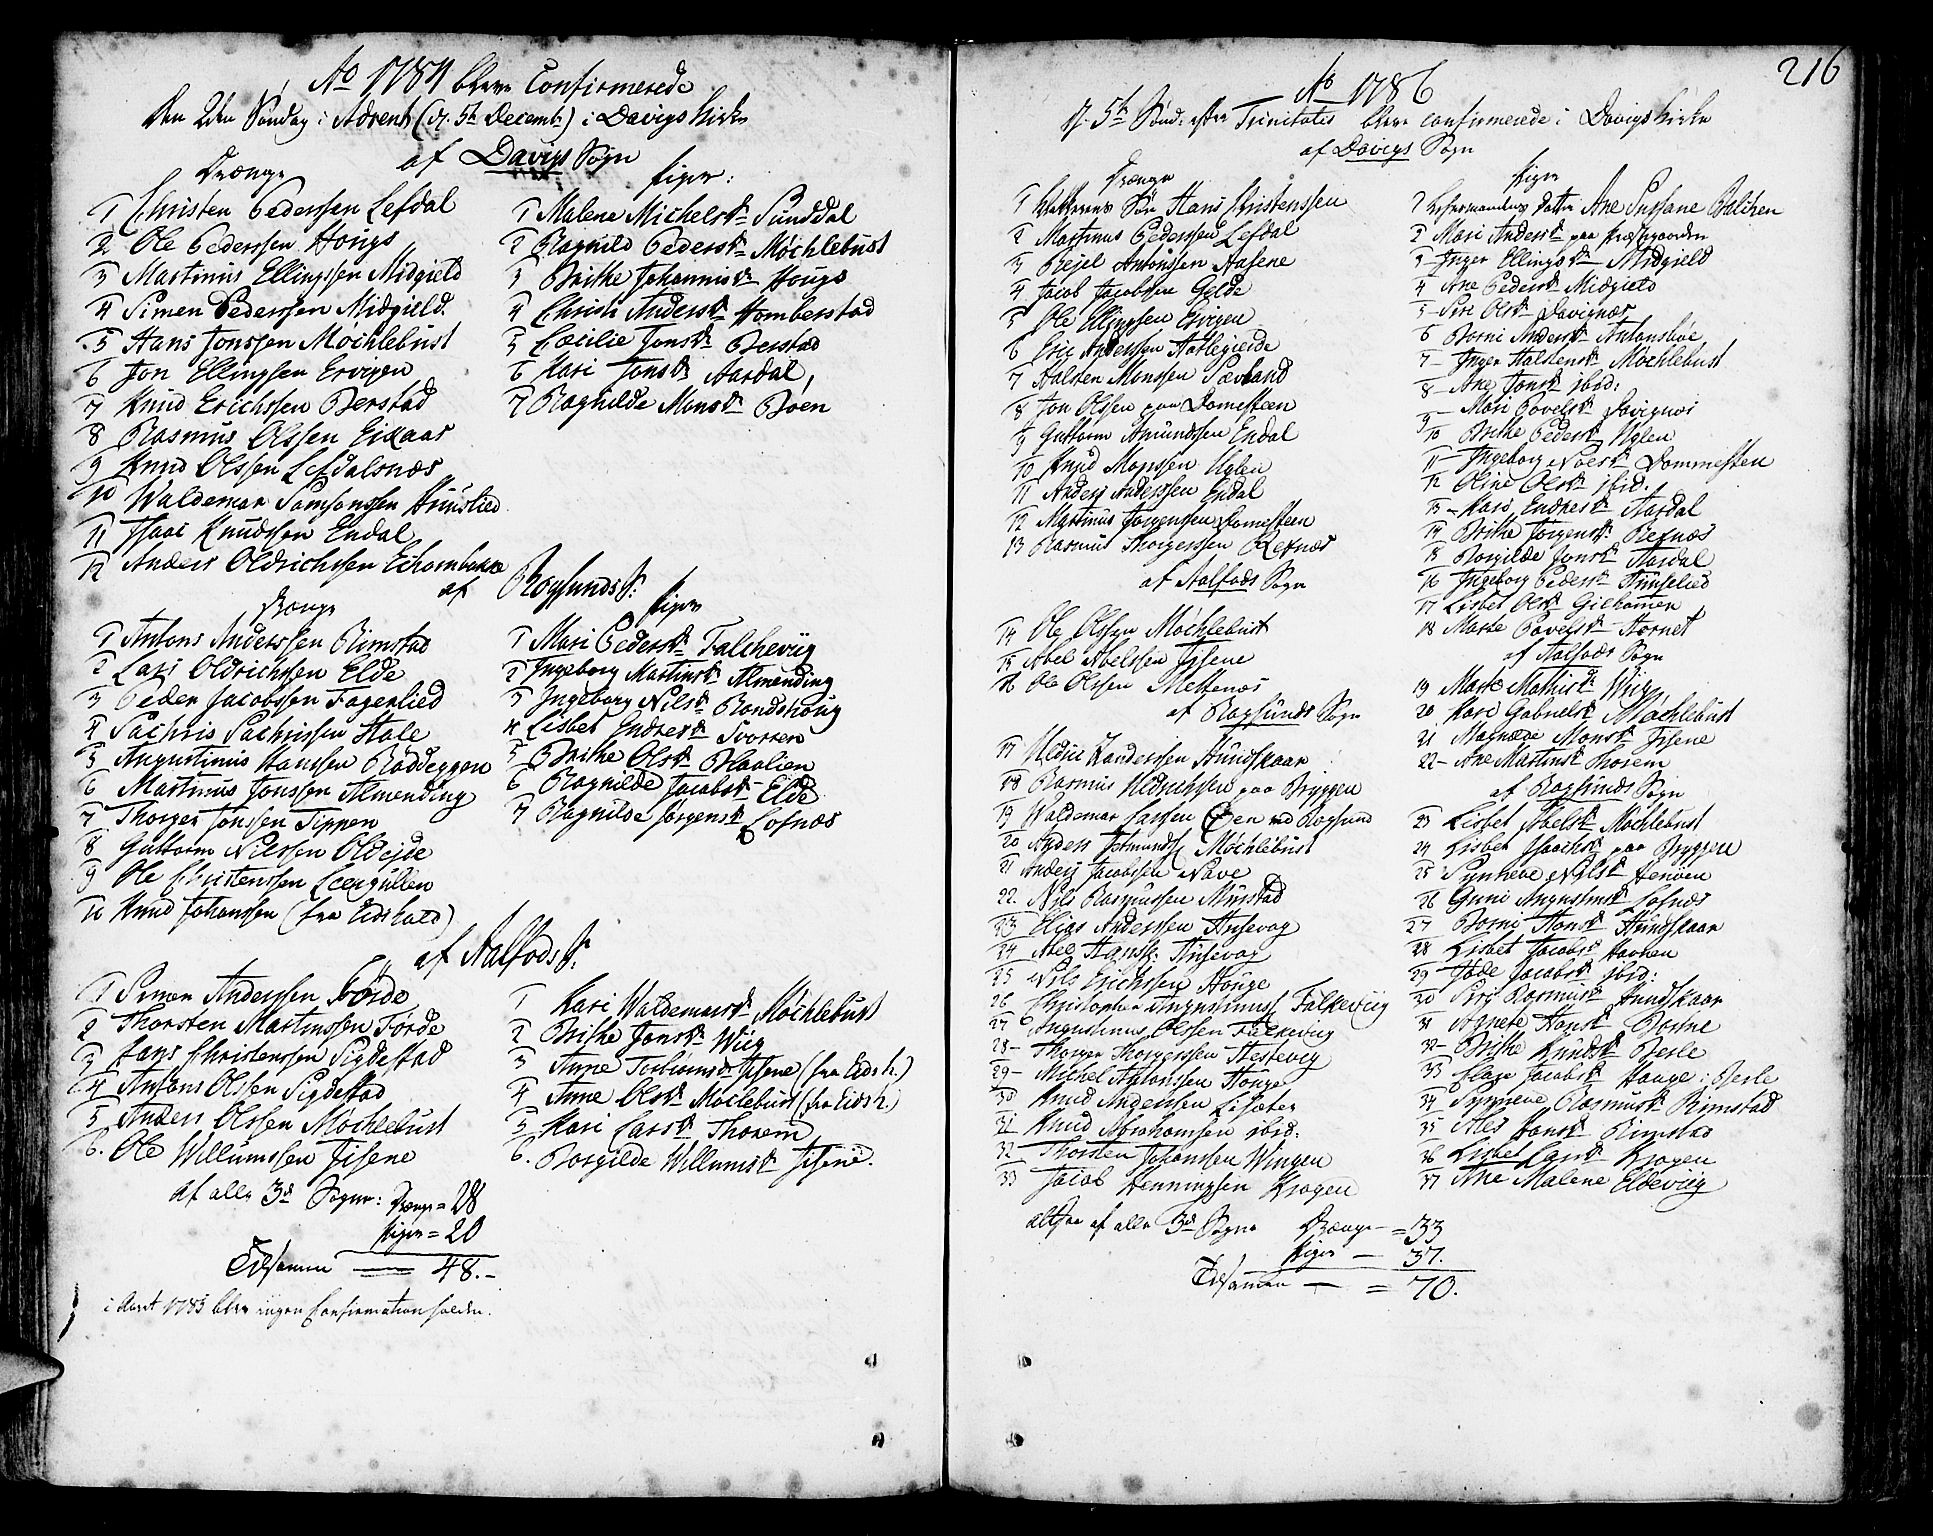 Ao 1784 bleve Confirmerede
Den 2den Søndag i Advent (d. 5te Decembr) i Davigs Kirke
af Davigs Sogn
Drænge
1 Christen Pederssen Lefdal
2 Ole Pederssen Hougs
3 Martinus Ellingssen Midgield
4 Simen Pederssen Midgield.
5 Hans Jonssen Møchlebust
6 Jon Ellingssen Ervigen
7 Knud Erichssen Berstad
8 Rasmus Olssen Eikaas
9 Knud Olssen Lefdalsnæs
10 Waldemar Samsonssen Huuslied
11 Isaac Knudssen Endal
12 Anders Oldrichssen
Piger:
1 Malene Michelsdr Sunddal
2 Ragnild Pedersdr Møchlebust
3 Brithe Johannisdr Hougs
4 Christi Andersdr Homberstad
5 Cæcilie Jonsdr Berstad
6 Kari Jonsdr Aardal,
7 Ragnilde Monsdr Boen
af Rogsunds S:
Drænge
1 Antons Anderssen Rimstad
2 Lars Oldrichssen Elde
3 Peder Jacobssen Fagerlied
4 Sachris Sachrissen Hole
5 Augustinus Hanssen Røddeggen
6 Martinus Jonssen Almending
7 Thorger Jonssen Tippen
8 Guttorm Nilssen Oldeide
9 Ole Christenssen Leengullen
10 Knud Johanssen (fra Eidshold)
Piger
1 Mari Pedersdr Falchevüg
2 Ingeborg Martinsdr Almending
3 Ingeborg Nilsdr Randshoug
4 Lisbet Endresdr Svorren
5 Brithe Olsdr Blaalien
6 Ragnilde Jacobsdr Elde
7 Ragnilde Jørgensdr Lofnæs
af Aalfods S:
1 Simon Anderssen Førde
2 Thorsten Martinssen Førde
3 Hans Christenssen Sigdestad
4 Antons Olssen Sigdestad
5 Anders Olssen Møchlebust
6. Ole Willumssen Iisene
1 Kari Waldemarsdr Møchlebust
2 Brithe Jonsdr Wiig
3 Anne Torbiørnsdr Iisene (fra Eidsh.)
4 Anne Olsdr Møchlebust (fra Eidsh.)
5 Kari Larsdr Thorem
6. Borgilde Willumsdr Iisene.
af alle 3de Sogne: Drænge = 28
Piger = 20
Tilsamen — 48.-
i Aaret 1785 blev ingen Confirmation holden.
216
Ao 1786
d. 5te Sønd: efter Trinitatis bleve confirmerede i Davigs Kirke
af Davigs Sogn
Drænge
1 Klokkerens Søn Hans Christenssen
2 Martinus Pederssen Lefdal
3 Rejel Antonssen Aasene
4 Jacob Jacobssen Gelde
5 Ole Ellingssen Ervigen
6 Eric Anderssen Hatlegielde
7 Aalsten Monssen Sævland
8 Jon Olssen paa Domesteen
9 Guttorm Amundssen Endal
10 Knud Monssen Uglen
11 Anders Anderssen Endal
12 Martinus Jørgenssen Domesteen
13 Rasmus Thorgerssen Refnæs
af Aalfods Sogn
14 Ole Olssen Møchlebust
15 Abel Abelssen Iisene
16 Ole Olssen Mettenæs
af Rogsunds Sogn
17 Hundskaar
18 Rasmus Hedrichssen paa Bryggen
19 Waldemar Larssen Øen ved Rogsund
20 Anders Møchlebust
21 Anders Jacobssen Nave
22. Nils Rasmussen Mürstad
23 Elias Anderssen Husevog
24 Abel Hanss: Husevog
25 Nils Erichssen Houge
26 Christopher Augustinuss Falkeviig
27 Augustinus Olssen Falkevüg
28- Thorger Thorgerssen Hestevig
29- Michel Antonssen Houge
30 Knud Anderssen Lisæter
31 Knud Abrahamsen ibid:
32- Thorsten Johanssen Wingen
33 Jacob Henningsen Krogen
altsaa af alle 3de Sogne Drænge — = 33
Piger — 37.
Tilsamen — = 70.
Piger
1 Datter Ane Susane Balchen
2 Mari Andersdr paa Præstegaarden
3 Inger Ellingsdr Midgield
4 Ane Pedersdr Midgield
5- Siri Olsdr Davignæs
6 Borni Andersdr Antonsbøe
7- Inger Haldensdr Møchlebust
8- Ane Jonsdr ibid:
9 Mari Povelsdr Davignæs
10 Brithe Pedersdr Uglen
11- Ingeborg Noesdr Dommesteen
12 Oline Olsdr ibid:
13- Kari Endresdr Aardal
14 Brithe Jørgensdr: Refnæs
15 Borgilde Jonsdr Aardal
16 Ingeborg Pedersdr Huuslied
17 Lisbet Olsdr Gilhammen
18 Marte Povelsdr Hornet
af Aalfods Sogn
19 Marte Mathisdr Wiig
20 Kari Gabrielsdr Møchlebust
21 Magnede Monsdr Iisene
22- Ane Martinsdr Thorem
af Rogsunds Sogn
23 Lisbet Abelsdr Møchlebust
24 Lisbet Isachsdr paa Bryggen
25 Synneve Nilsdr Henøen
26 Guni Augustinusdr Lofnæs
27 Borni Hansdr Hundskaar
28 Lisbet Jacobsdr Havnen
29 Jøde Jacobsdr ibid:
30 Siri Rasmusdr Hundskaar
31 Agnete Hansdr Bortne
32- Brithe Knudsdr Berle
33 Jacobsdr Hauge i Berle
34 Synneve Rasmusdr Rimstad
35 Ales Hansdr Rimstad
36 Lisbet Larsdr Krogen
37 Ane Malene Eldevüg